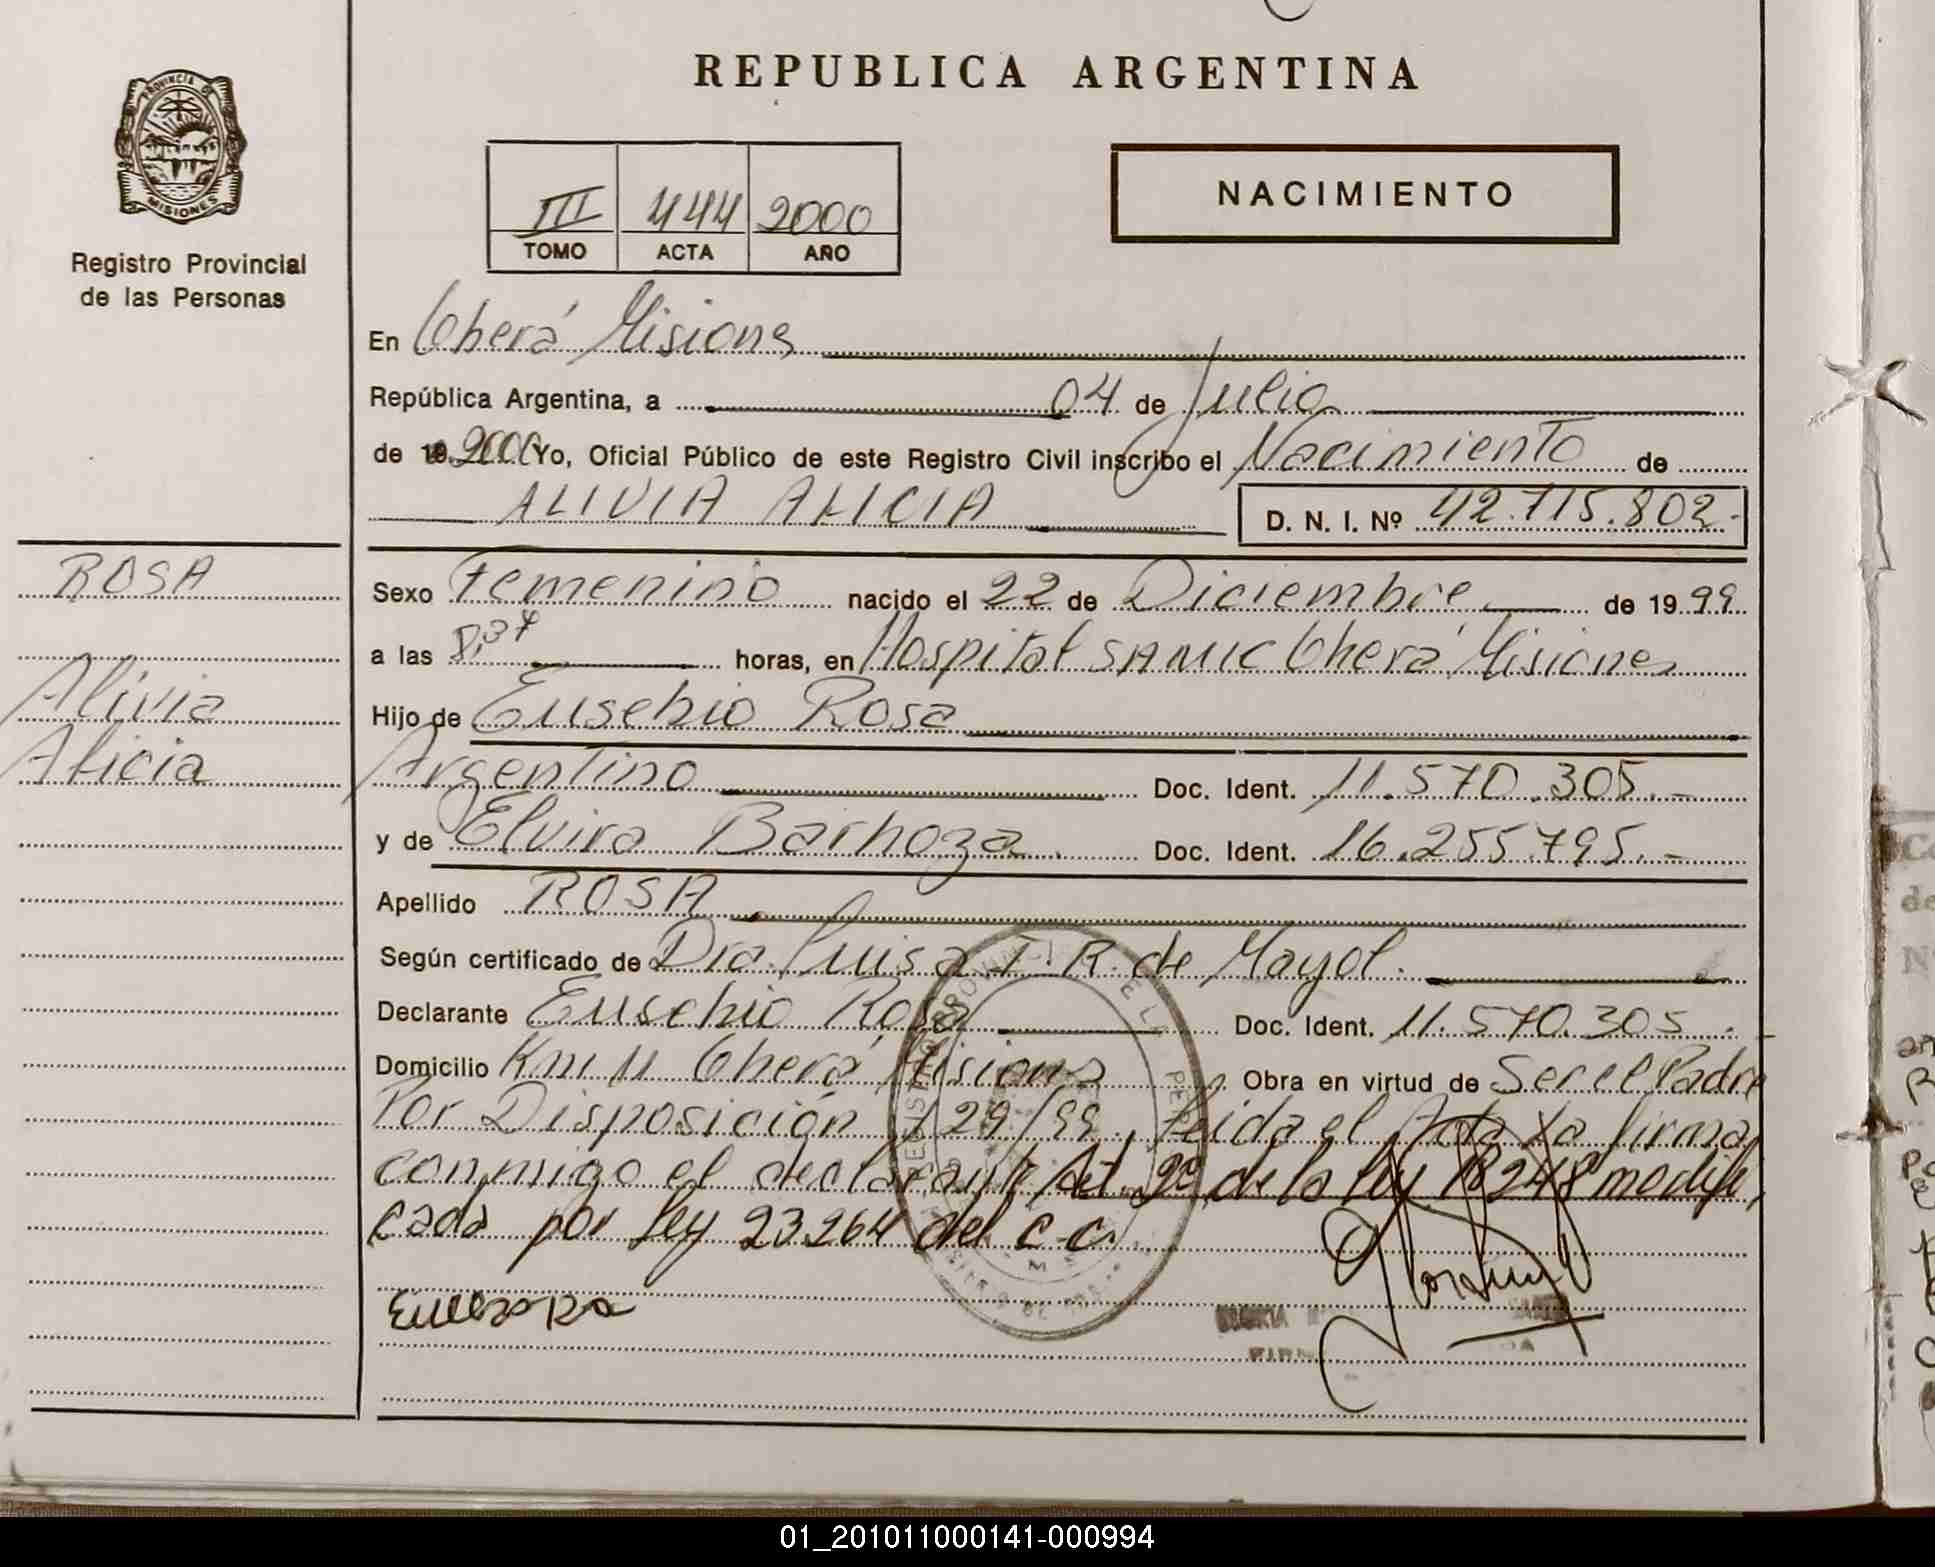 REPUBLICA ARGENTINA
PROVINCIA DE
MISIONES
Registro Provincial
de las Personas
III 444 2000
TOMO ACTA AÑO
NACIMIENTO
En Oberá Misiones
República Argentina, a 04 de Julio
de 19 2000 Yo, Oficial Público de este Registro Civil inscribo el Nacimiento de
ALIVIA ALICIA D. N. I. Nº 42.715.802.-
ROSA
Alivia
Alicia
Sexo Femenino nacido el 22 de Diciembre de 1999
a las 8,37 horas, en Hospital SAMIC Oberá Misiones
Hijo de Eusebio Rosa
Argentino Doc. Ident. 11.570.305.-
y de Elvira Barboza Doc. Ident. 16.255.795.-
Apellido ROSA
Según certificado de Dra. Luisa T. R. de Mayol.
Declarante Eusebio Rosa Doc. Ident. 11.570.305.-
Domicilio Km 11 Oberá Misiones, Obra en virtud de Ser el Padre
Por Disposición 129/99, Leída el Acta La firma
conmigo el declarante Art. 2º de la ley 18248 modifi
cada por ley 23264 del C.C.
01_201011000141-000994